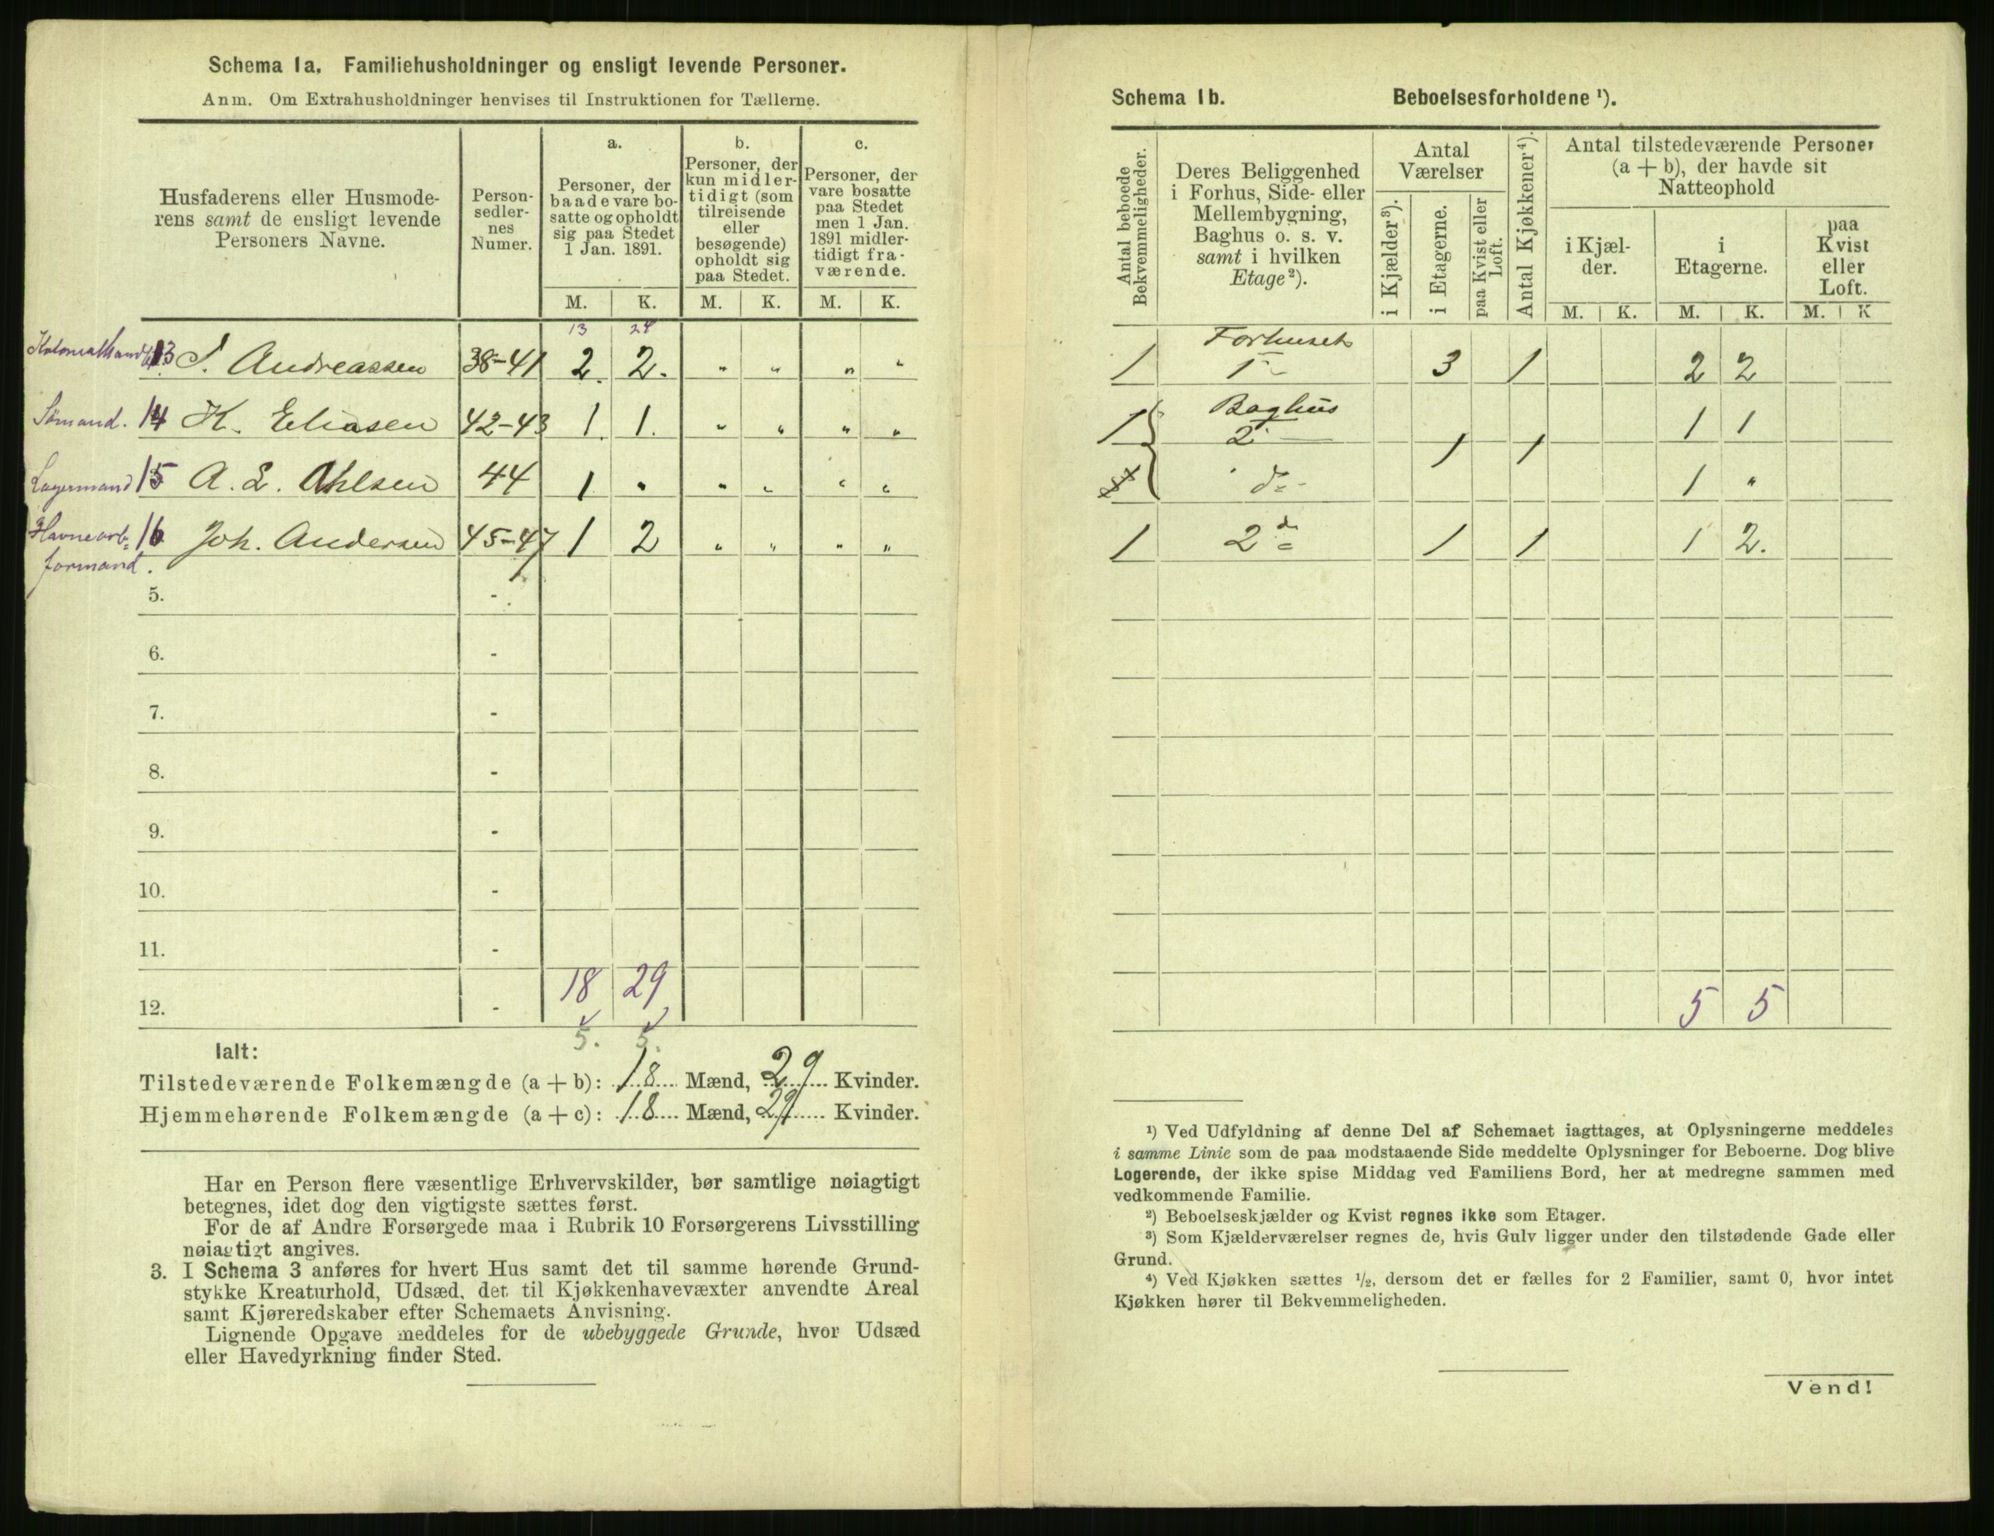 Schema 1a. Familiehusholdninger og ensligt levende Personer.
Anm. Om Extrahusholdninger henvises til Instruktionen for Tællerne.
Husfaderens eller Husmode-
rens samt de ensligt levende
Personers Navne.
Person-
sedler-
nes
Numer.
a.
Personer, der
baade vare bo-
satte og opholdt
sig paa Stedet
1 Jan. 1891.
b.
Personer, der
kun midler-
tidigt (som
tilreisende
eller
besøgende)
opholdt sig
paa Stedet.
c.
Personer, der
vare bosatte
paa Stedet
men 1 Jan.
1891 midler-
tidigt fra-
værende.
M. K. M. K. M. K.
13
Kolonialhand 13 J. Andreassen 38-41 2. 2. " " " "
Sømand. 14 K. Eliasen 42-43 1. 1. " " " "
Lagermand 15 A. L. Ohlsen 44 1 " " " " "
Havnearb= 16 Joh. Andersen 45-47 1 2 " " " "
formand.
5. -
6. -
7. -
8. -
9. -
10. -
11. -
18 29
12. -
5. 5.
Ialt:
Tilstedeværende Folkemængde (a + b): 18 Mænd, 29 Kvinder.
Hjemmehørende Folkemængde (a + c): 18 Mænd, 29 Kvinder.
Har en Person flere væsentlige Erhvervskilder, bør samtlige nøiagtigt
betegnes, idet dog den vigtigste sættes først.
For de af Andre Forsørgede maa i Rubrik 10 Forsørgerens Livsstilling
nøiagtigt angives.
3. I Schema 3 anføres for hvert Hus samt det til samme hørende Grund-
stykke Kreaturhold, Udsæd, det til Kjøkkenhavevæxter anvendte Areal
samt Kjøreredskaber efter Schemaets Anvisning.
Lignende Opgave meddeles for de ubebyggede Grunde, hvor Udsæd
eller Havedyrkning finder Sted.
Schema 1b. Beboelsesforholdene ¹).
Antal beboede
Bekvemmeligheder.
Deres Beliggenhed
i Forhus, Side- eller
Mellembygning,
Baghus o. s. v.
samt i hvilken
Etage²).
Antal
Værelser
i Kjælder³).
i Etagerne.
paa Kvist eller
Loft.
Antal Kjøkkener⁴).
Antal tilstedeværende Personer
(a + b), der havde sit
Natteophold
i Kjæl-
der.
i
Etagerne.
paa
Kvist
eller
Loft.
M. K. M. K. M. K
Forhuset
1 1 3 1 2 2
Baghus
1 2 1 1 1 1
do 1 "
1 2 do 1 1 1 2.
5 5
¹) Ved Udfyldning af denne Del af Schemaet iagttages, at Oplysningerne meddeles
i samme Linie som de paa modstaaende Side meddelte Oplysninger for Beboerne. Dog blive
Logerende, der ikke spise Middag ved Familiens Bord, her at medregne sammen med
vedkommende Familie.
²) Beboelseskjælder og Kvist regnes ikke som Etager.
³) Som Kjælderværelser regnes de, hvis Gulv ligger under den tilstødende Gade eller
Grund.
⁴) Ved Kjøkken sættes ½, dersom det er fælles for 2 Familier, samt 0, hvor intet
Kjøkken hører til Bekvemmeligheden.
Vend!